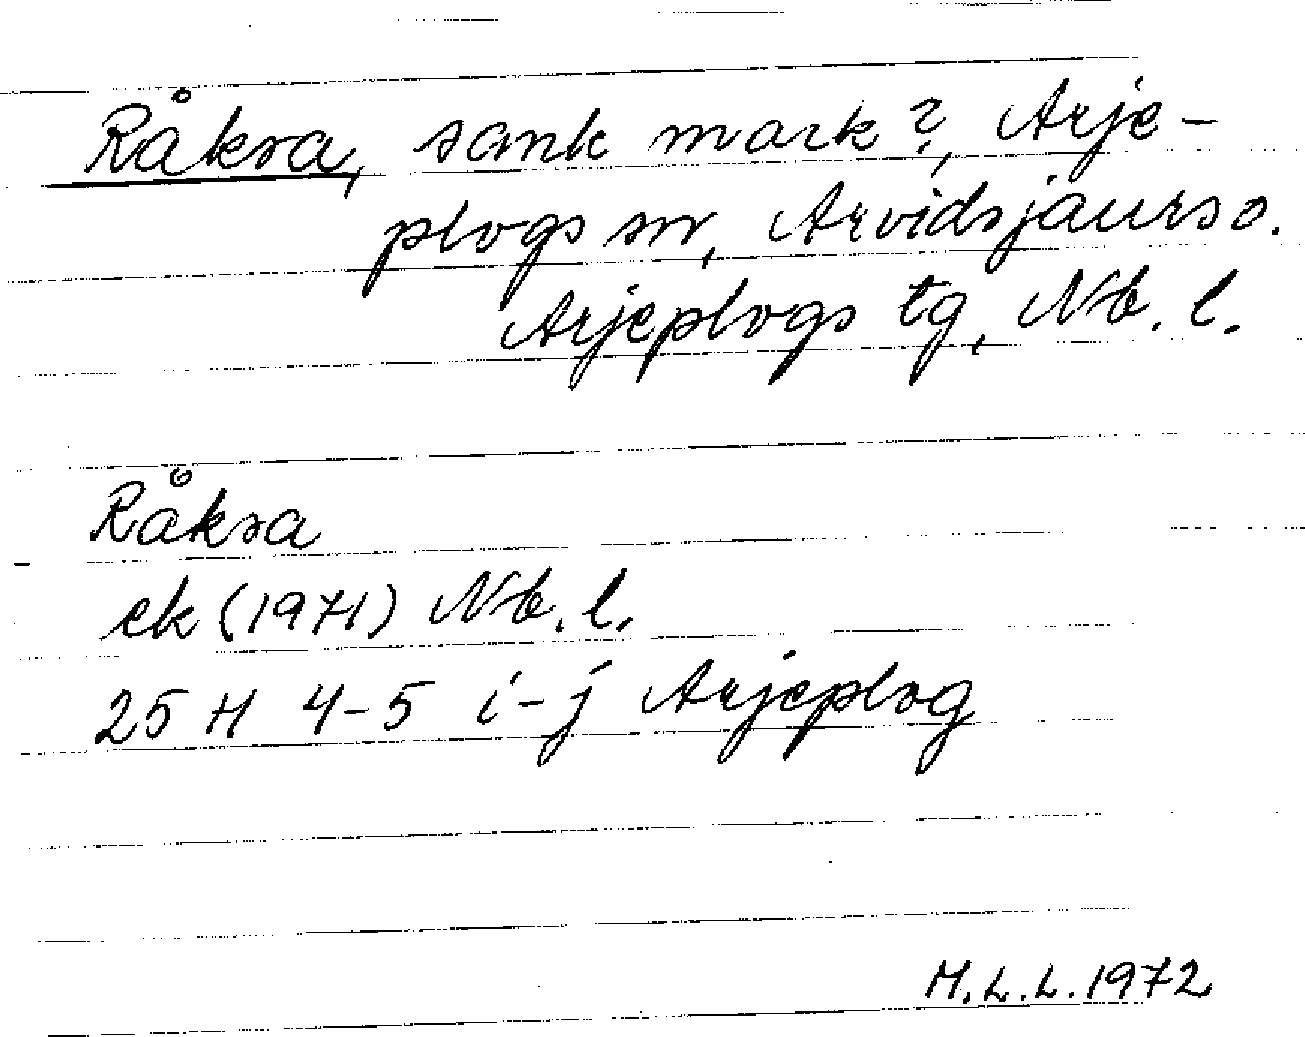 Råksa, sank mark?, Arje-
plogs sn, Arvidsjaurs o.
Arjeplogs tg, Nb. l.
Råksa
ek (1971) Nb. l.
25 H 4-5 i-j Arjeplog
M.L.L. 1972